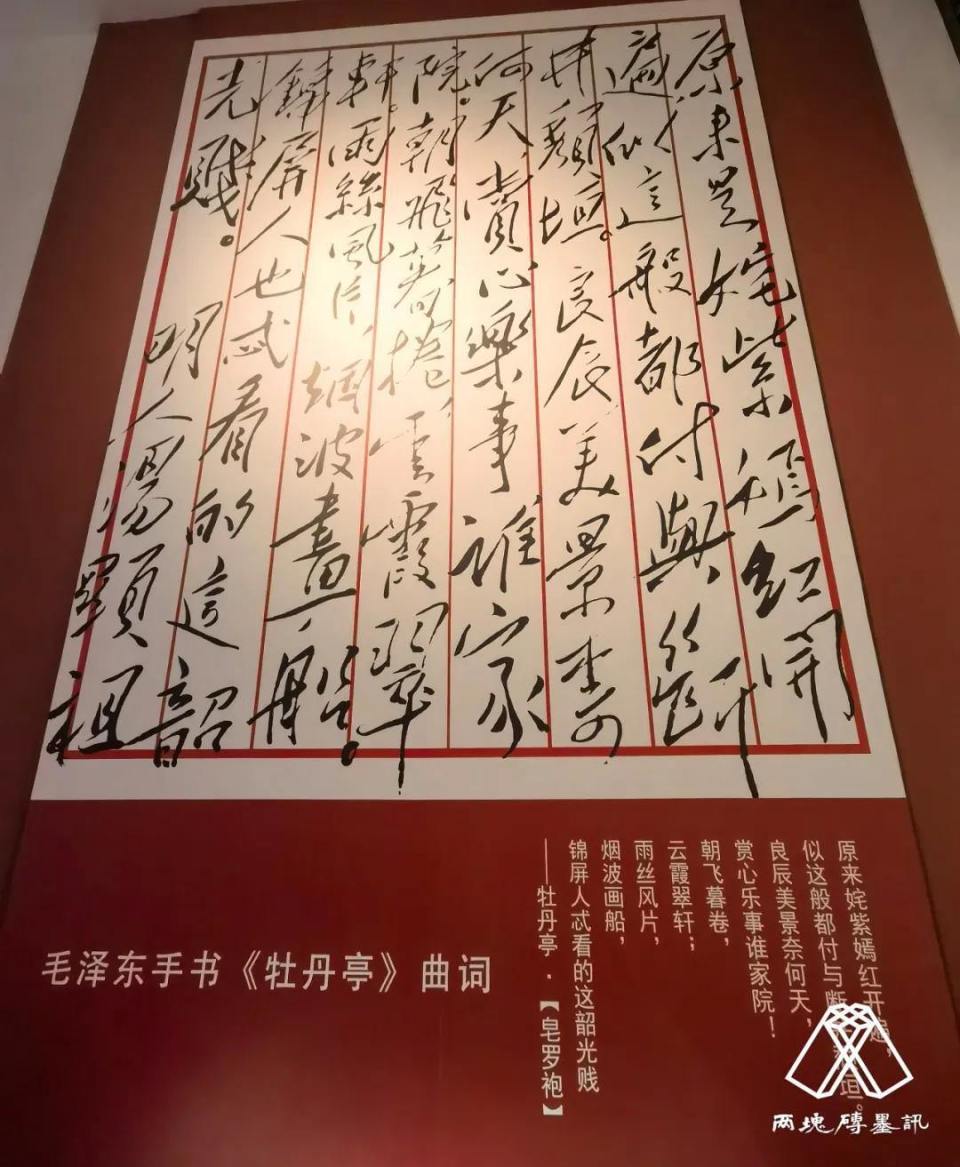 原來是姹紫嫣红開
遍,似這般都付與斷
井頹垣。良辰美景奈
何天,賞心樂事誰家
院。朝飛暮捲,雲霞翠
軒。雨絲風片,烟波畫船。
錦屏人也忒看的這韶
光賤。
明人湯顯祖
原来姹紫嫣红开遍,
似这般都付与断垣。
良辰美景奈何天,
赏心乐事谁家院!
朝飞暮卷,
云霞翠轩;
雨丝风片,
烟波画船,
锦屏人忒看的这韶光贱
——牡丹亭·【皂罗袍】
毛泽东手书《牡丹亭》曲词
两塊磚墨訊